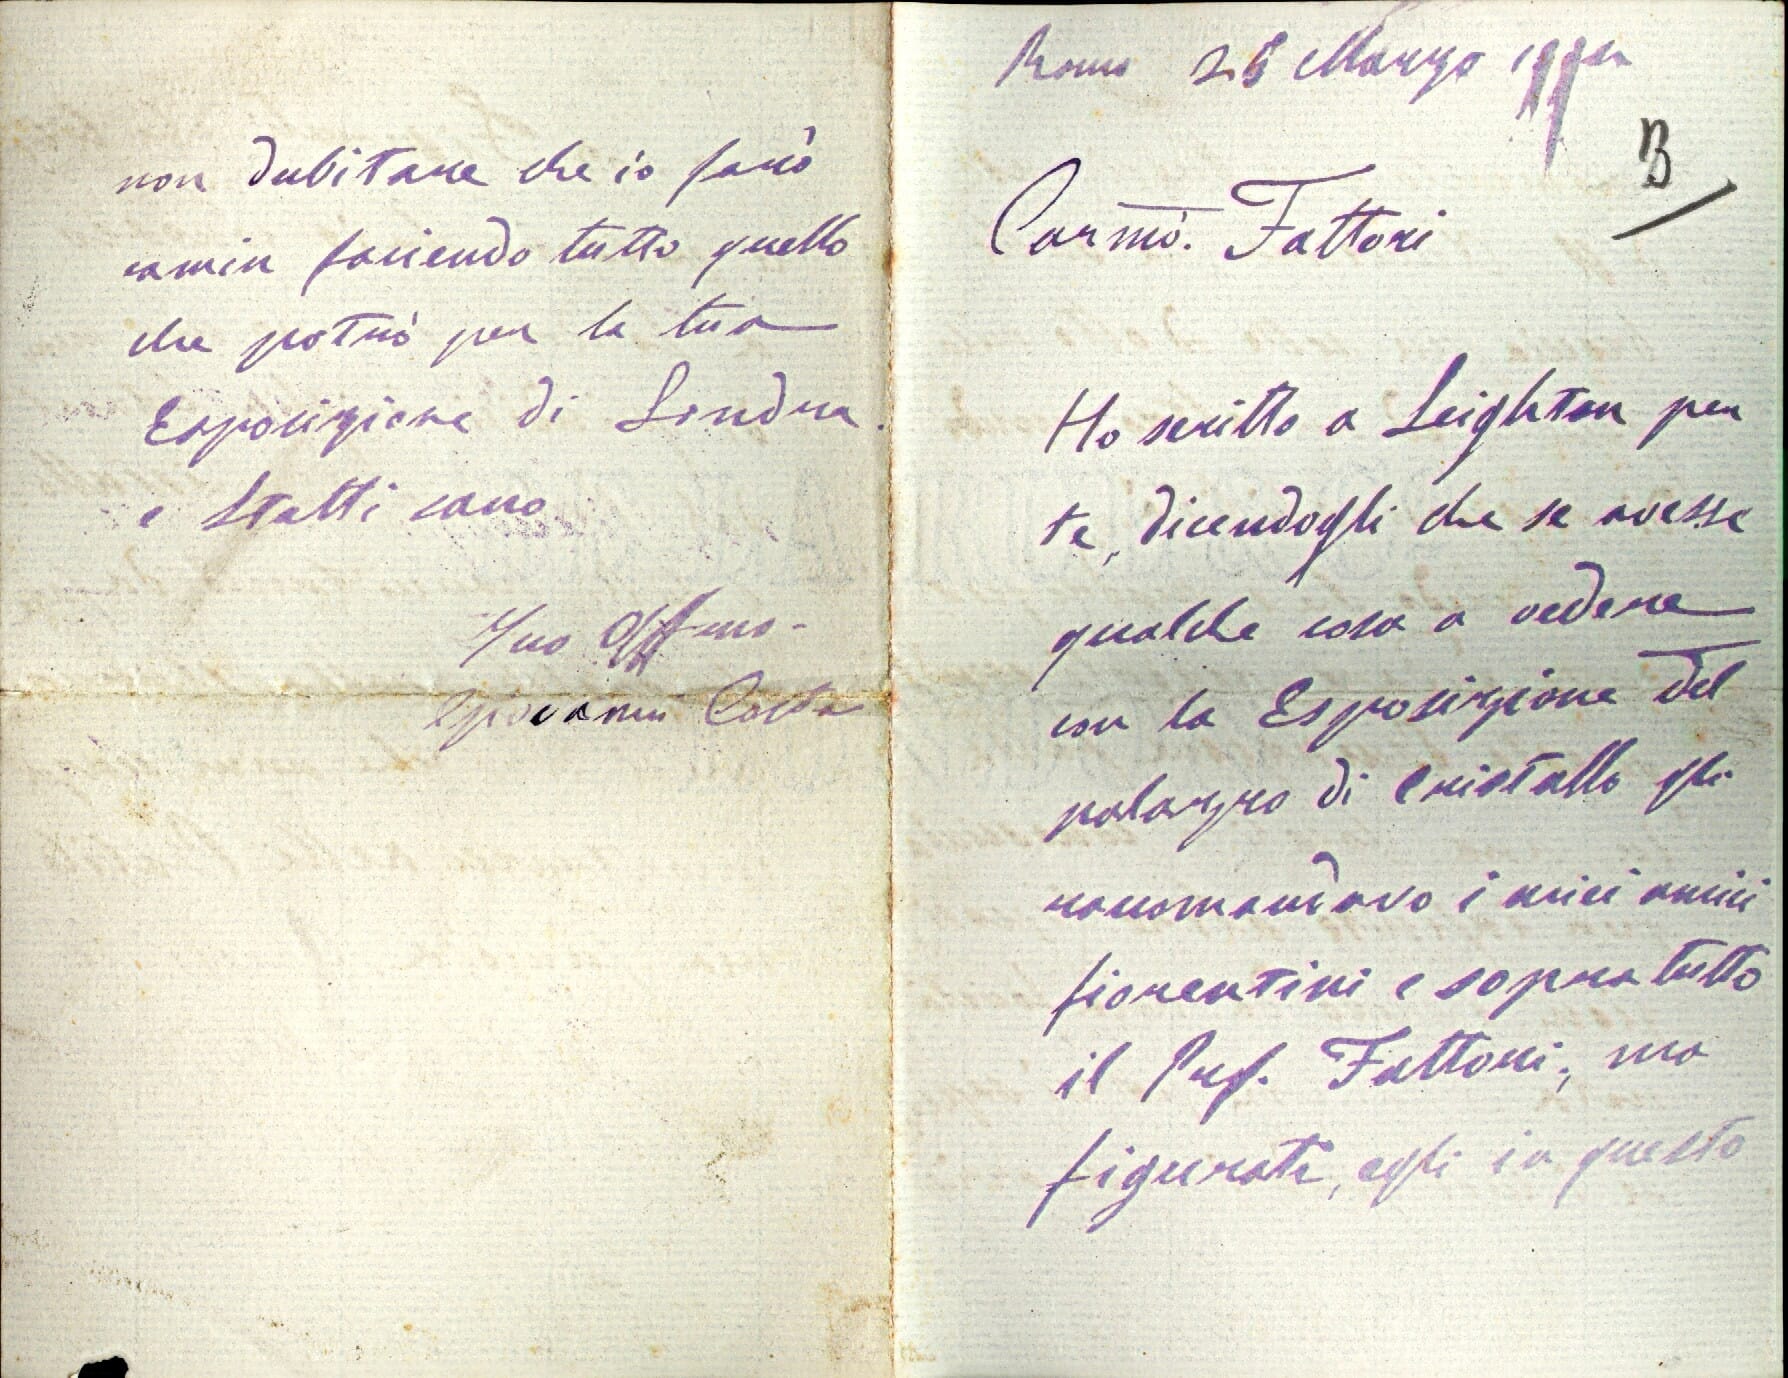 Roma 25 Marzo
B
Carmo. Fattori
Ho scritto a Leighton per
te, dicendogli che se avesse
qualche cosa a vedere
con la Esposizione del
palazzo di Cristallo gli
raccomandavo i miei amici
fiorentini e sopra tutto
il Prof. Fattori, ma
figurati, egli in questo
non dubitare che io farò
facendo tutto quello
che potrò per la tua
Esposizione di Londra.
e statti sano
Tuo Affmo.
Giovanni Costa